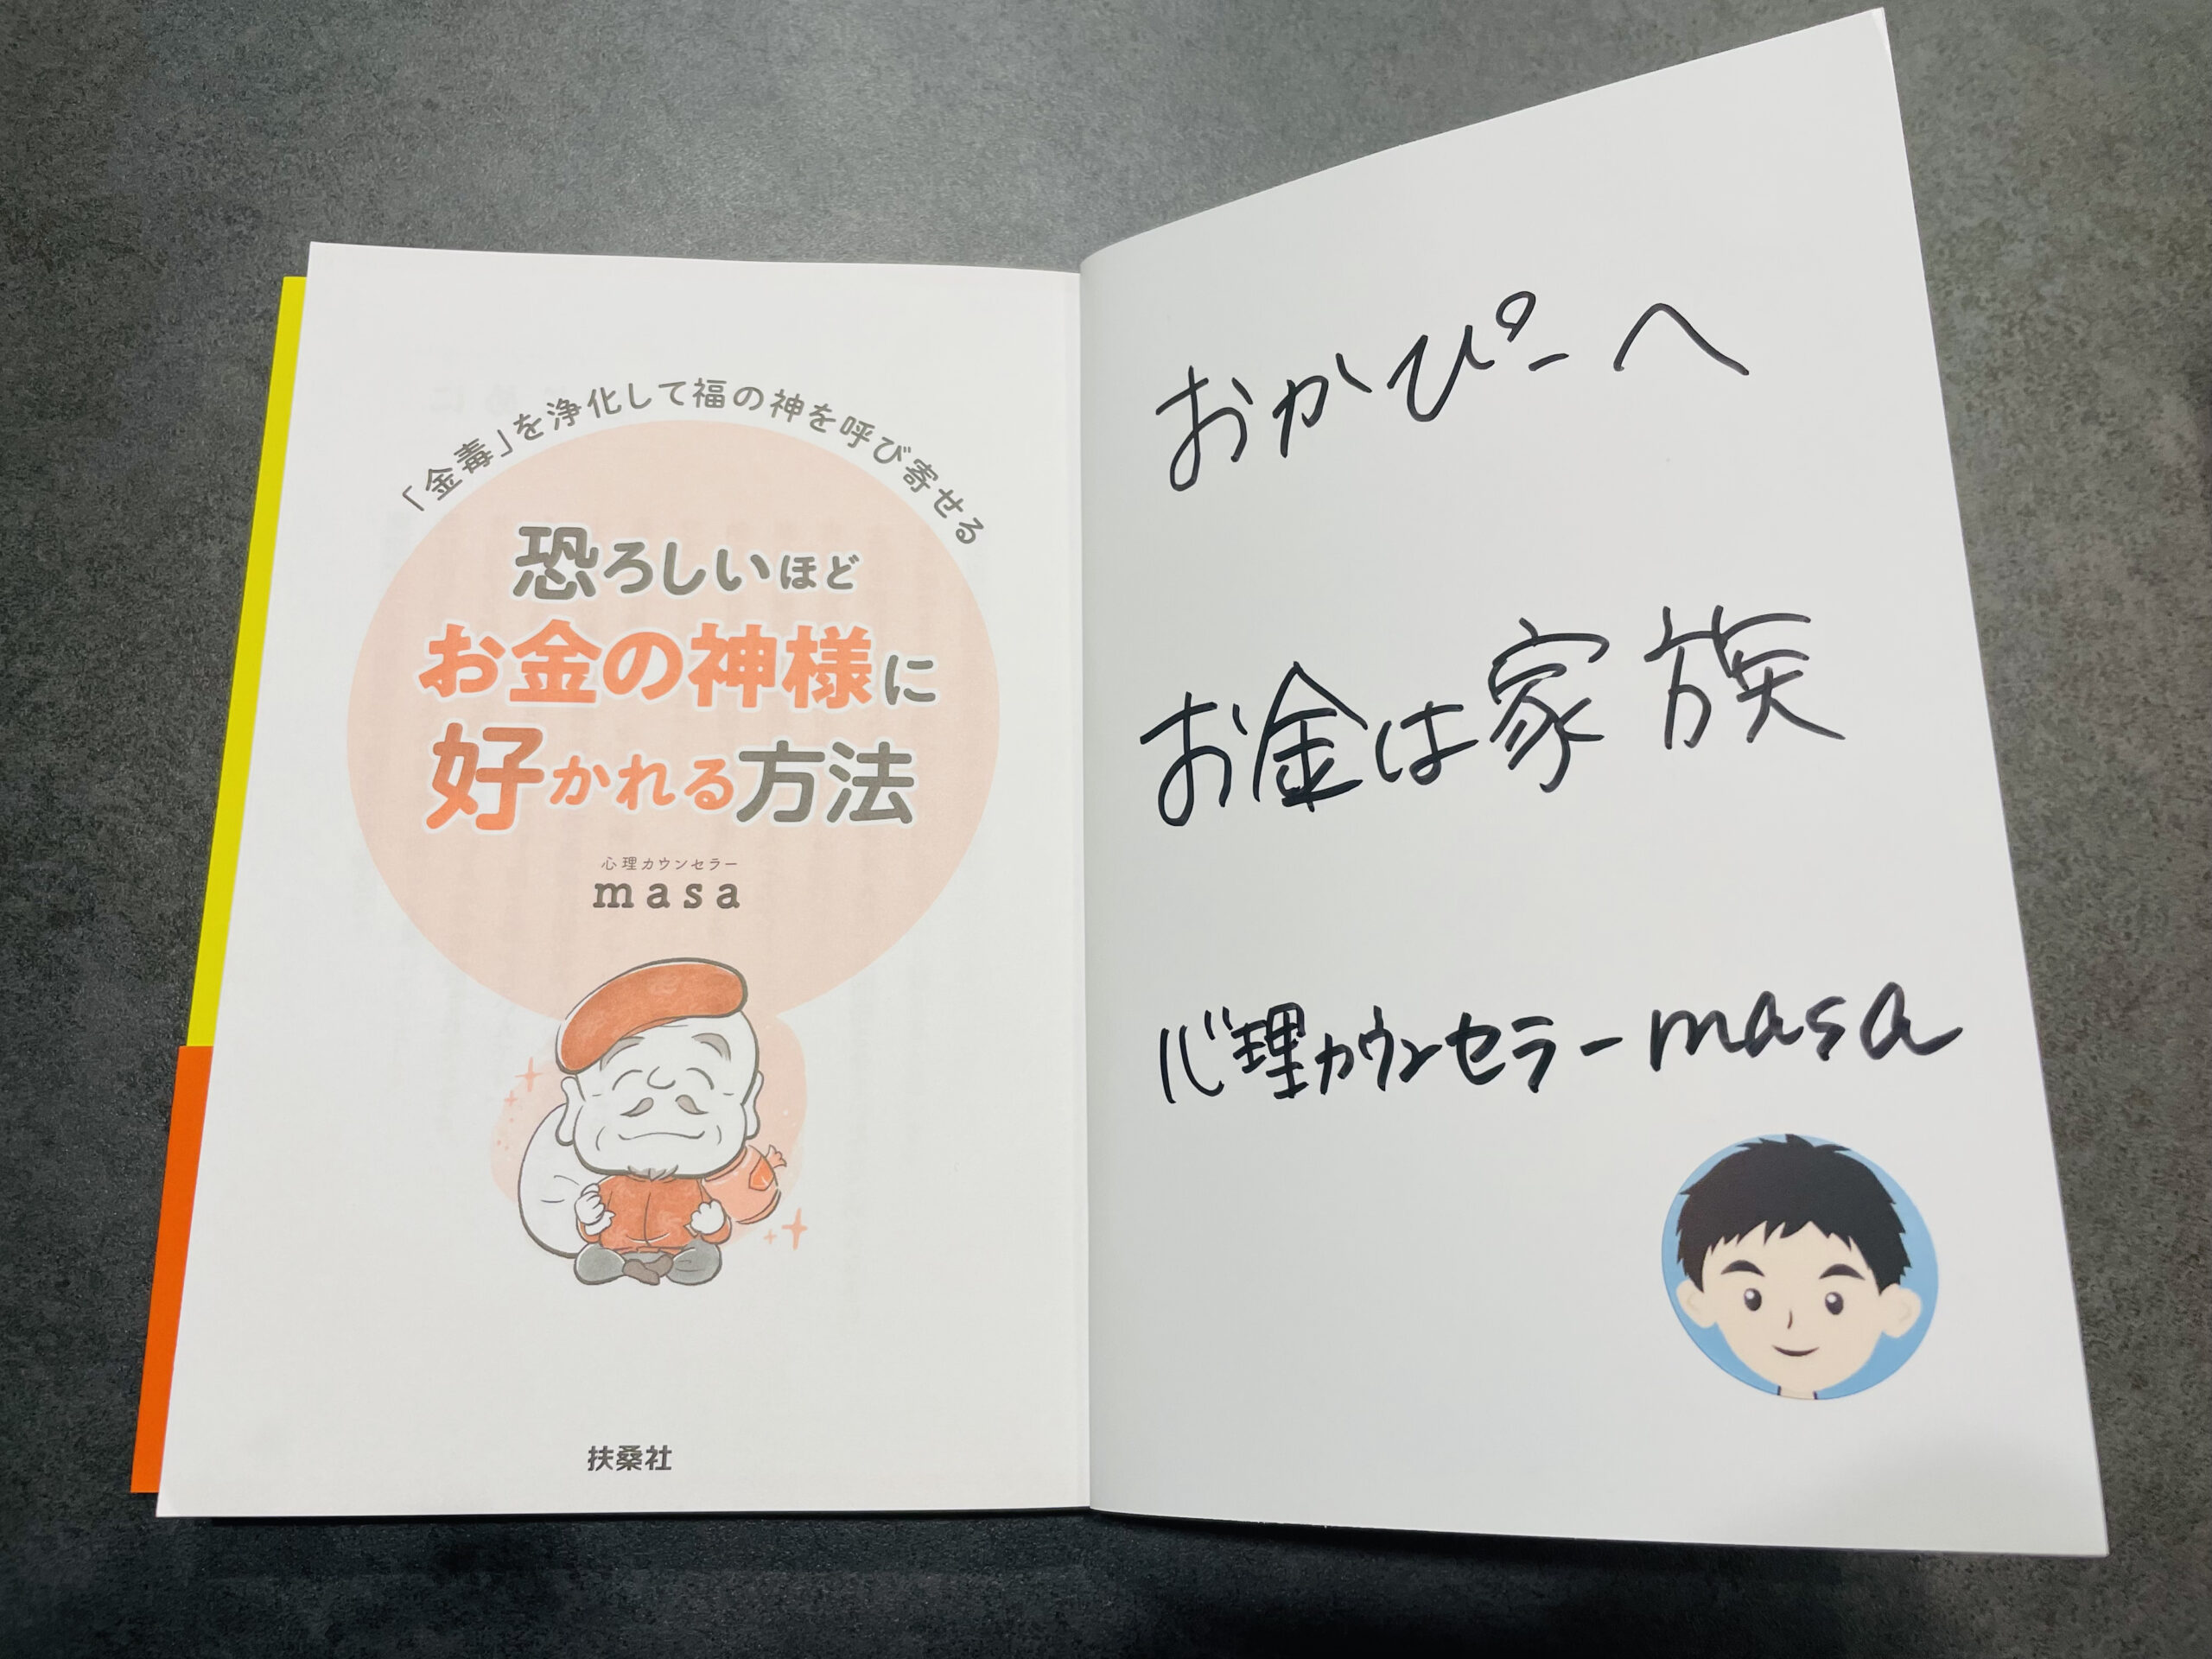 「金毒」を浄化して福の神を呼び寄せる
恐ろしいほど
お金の神様に
好かれる方法
心理カウンセラー
masa
扶桑社
おかぴーへ
お金は家族
心理カウンセラーmasa